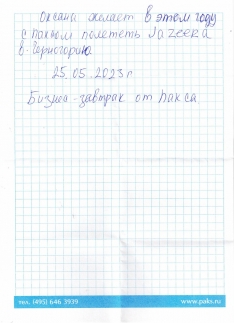 Оксана желает в этом году
с паксом полететь Jazeera
в Черногорию
25.05.2023 г
Бизнес-завтрак от Пакса
тел. (495) 646 3939 www.paks.ru